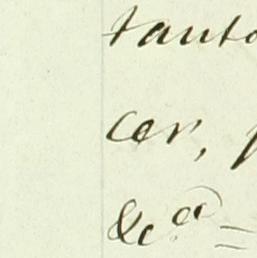 tanto
cer, p
&c.ª =